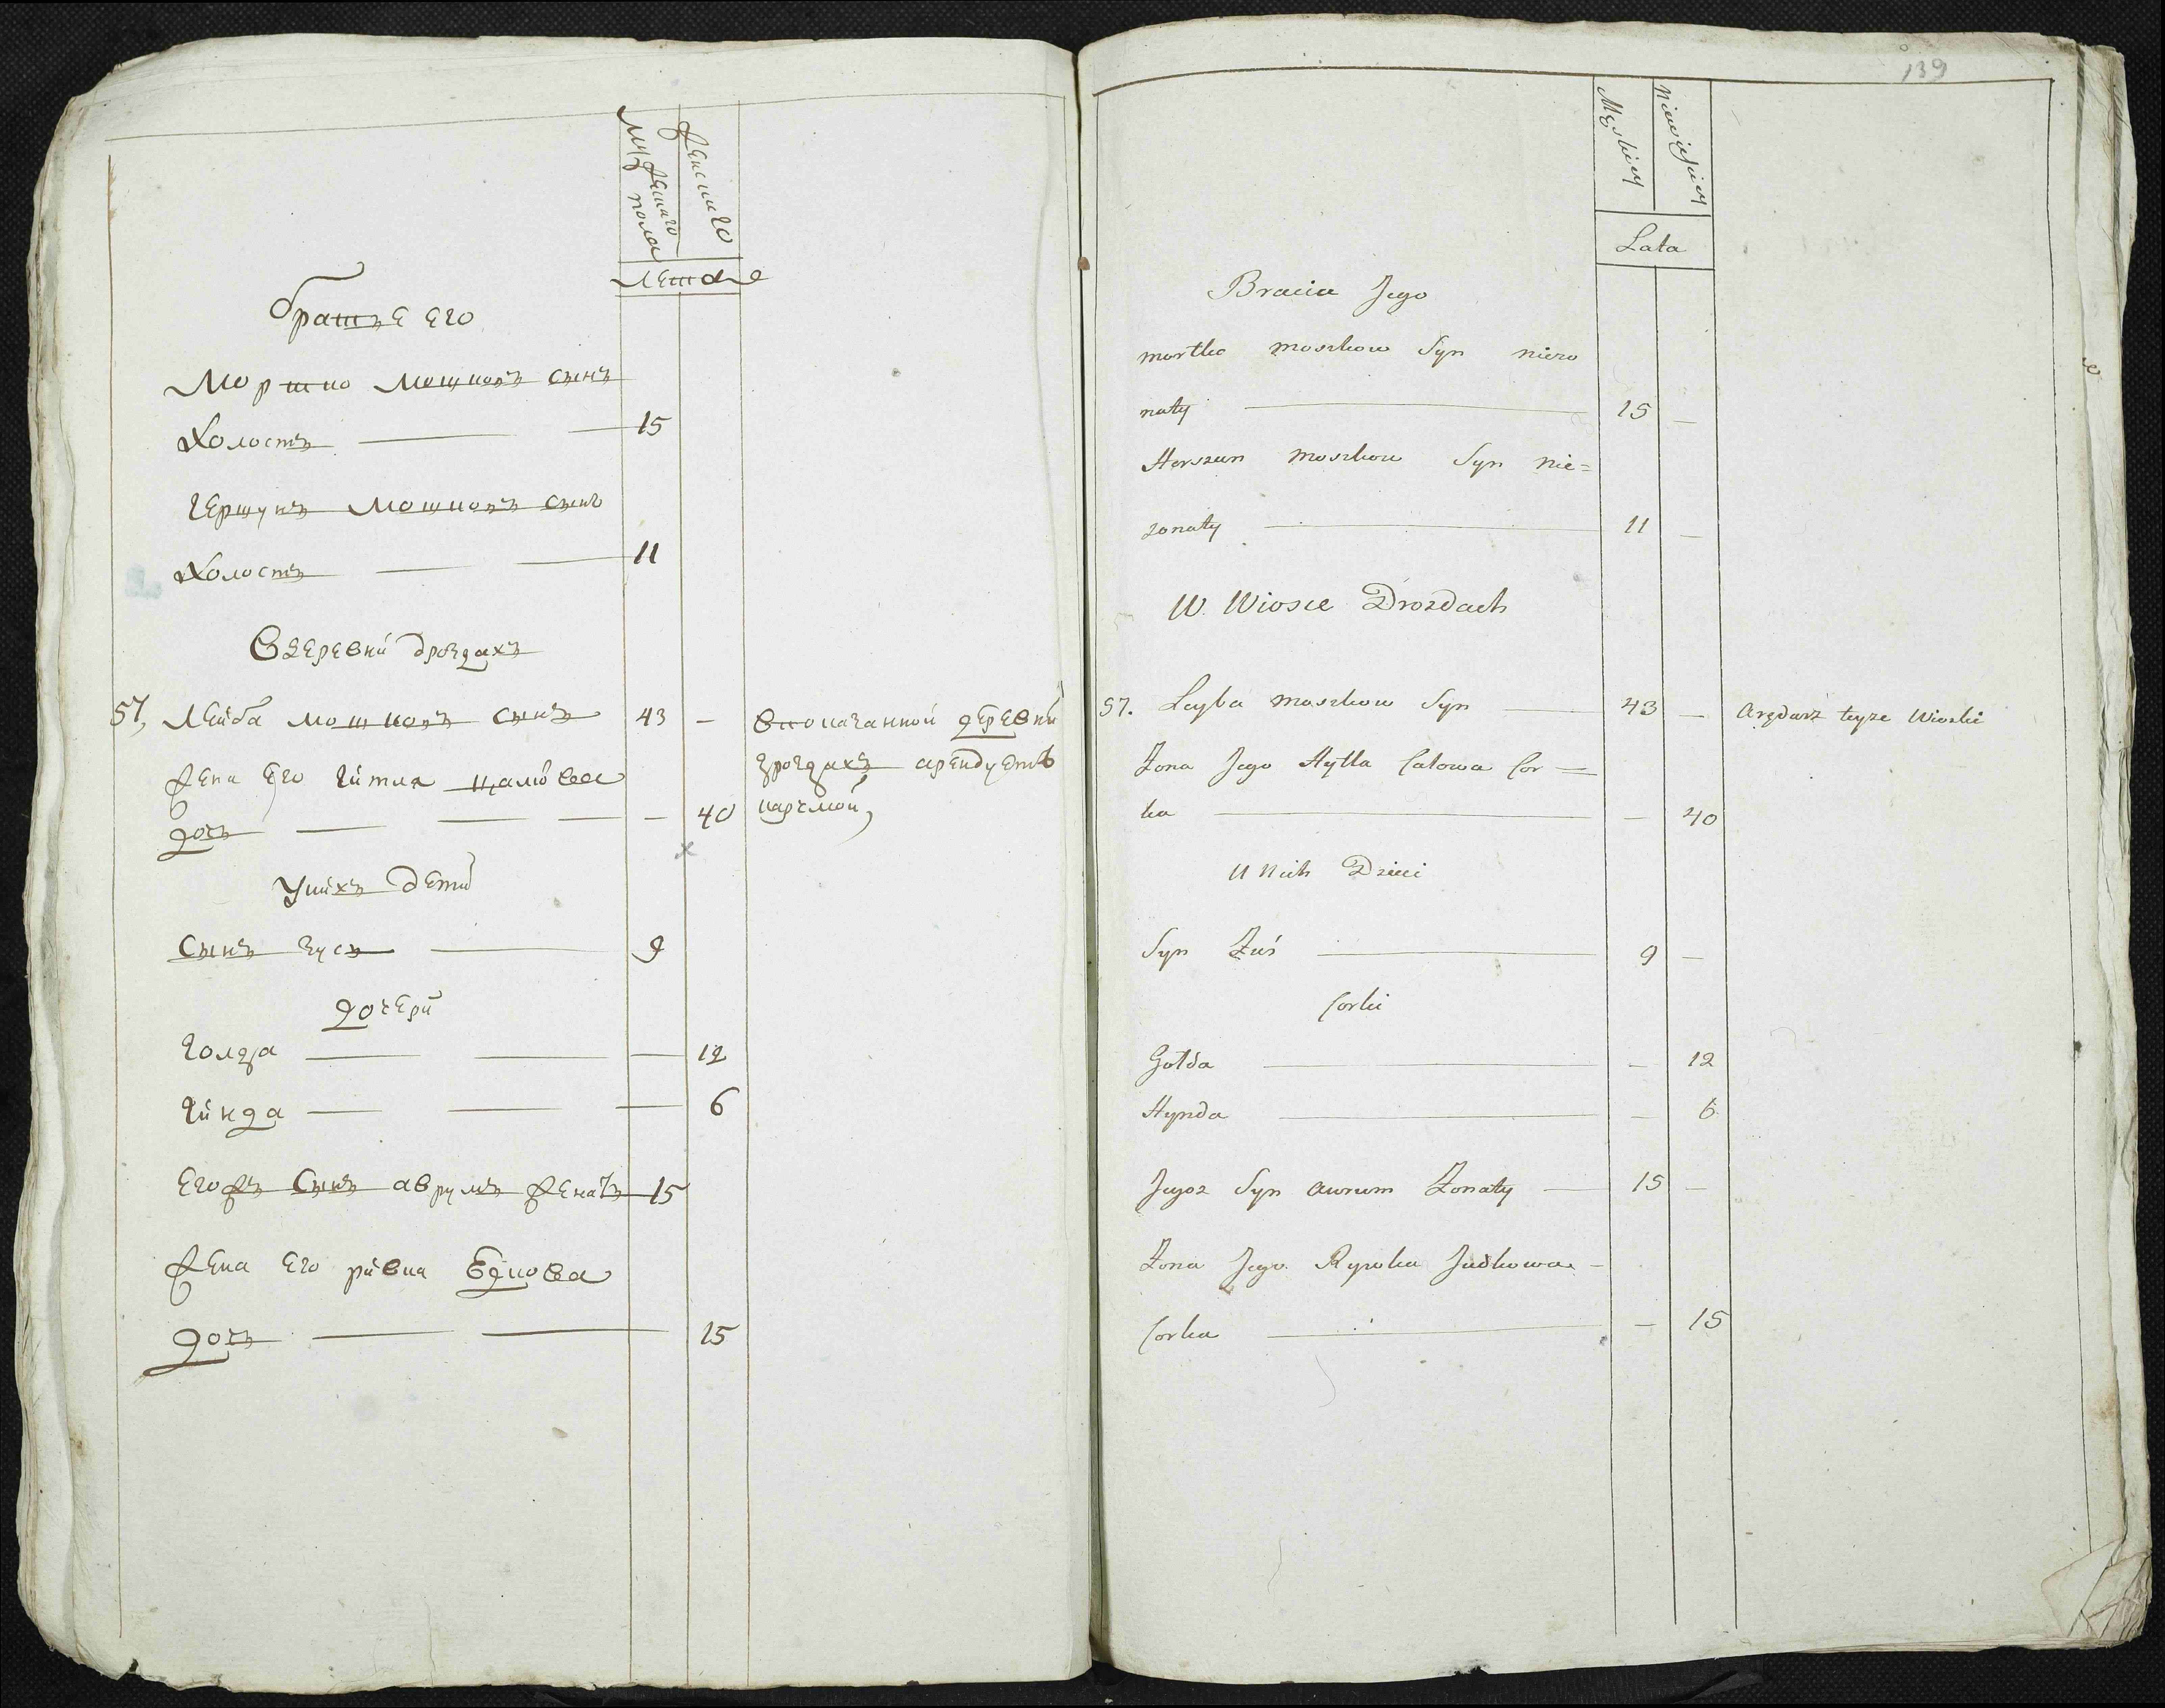 мужескаго
пола
женскаго
лета
братье его
Мортко Мошковъ сынъ
Холостъ — 15
Гершунъ Мошковъ сынъ
Холостъ — 11
Вдеревни дроздахъ
57, Лейба Мошковъ сынъ 43 — впоказанной деревни
жена его Гитля цалiова дроздахъ арендуетъ
дочь — — 40 карчмой,
Унихъ дети
Сынъ Зусь — 9
дочери
Голда — — 12
Гинда — — 6
Егожъ Сынъ аврумъ женатъ 15
жена его ривка Юдкова
дочь — 15
139
Męskiey
Niewieskiey
Lata
Bracia Jego
mortko moszkow Syn niezo
naty — 15 —
Herszun moszkow Syn nie=
zonaty — 11 —
W Wiosce Drozdach
57. Leyba moszkow Syn — 43 — Arędarz teyze Wioski
Zona Jego Hytla Calowa Cor=
ka — — 40
U Nich Dzieci
Syn Zuś — 9 —
Corki
Golda — — 12
Hynda — — 6
Jegoz Syn Awrum Zonaty — 15 —
Zona Jego Rywka Judkowa-
Corka — — 15